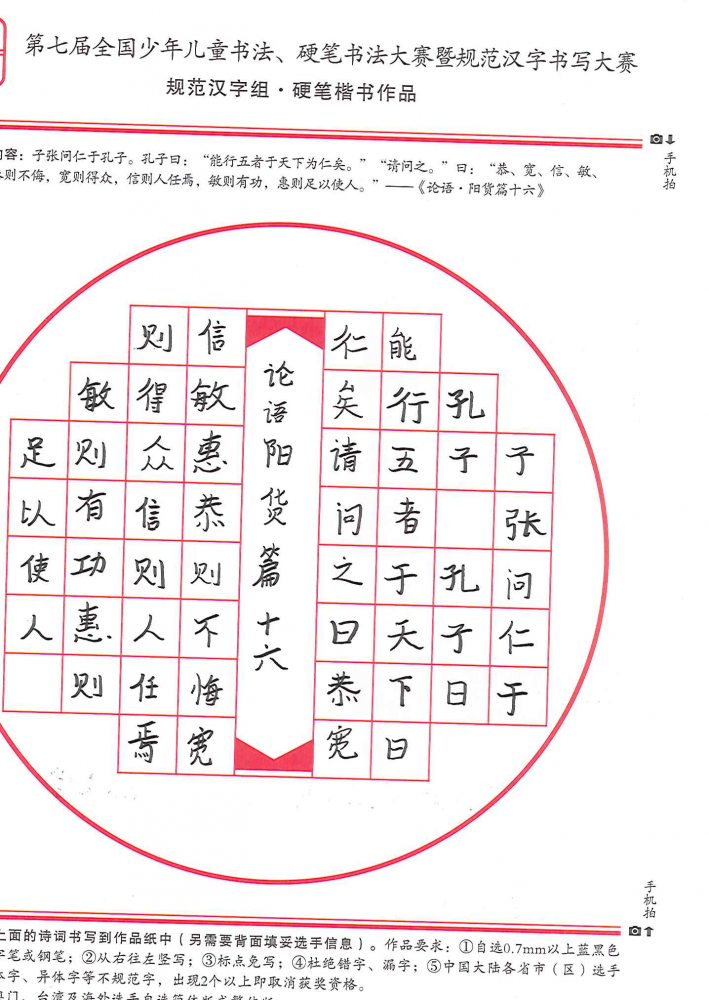 第七届全国少年儿童书法、硬笔书法大赛暨规范汉字书写大赛
规范汉字组·硬笔楷书作品
手机拍
容：子张问仁于孔子。孔子曰：“能行五者于天下为仁矣。”“请问之。”曰：“恭、宽、信、敏、
则不侮，宽则得众，信则人任焉，敏则有功，惠则足以使人。”——《论语·阳货篇十六》
子张问仁于
孔子 孔子日
能行五者于天下日
仁矣请问之曰恭宽
论语阳货篇十六
信敏惠恭则不悔宽
则得众信则人任焉
敏则有功惠则
足以使人
手机拍
上面的诗词书写到作品纸中（另需要背面填妥选手信息）。作品要求：①自选0.7mm以上蓝黑色
字笔或钢笔；②从右往左竖写；③标点免写；④杜绝错字、漏字；⑤中国大陆各省市（区）选手
字、异体字等不规范字，出现2个以上即取消获奖资格。